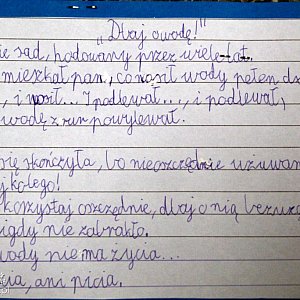 „Dbaj o wodę!"
ie sad, hodowany przez wiele lat.
mieszkał pan, co nosił wody pełen dz
, i nosił... I podlewał..., i podlewał,
wodę z rur powylewał.
się skończyła, bo nieoszczędnie używan
j kolego!
korzystaj oszczędnie, dbaj o nią bezus
igdy nie zabrakło.
wody nie ma życia...
cia, ani picia.